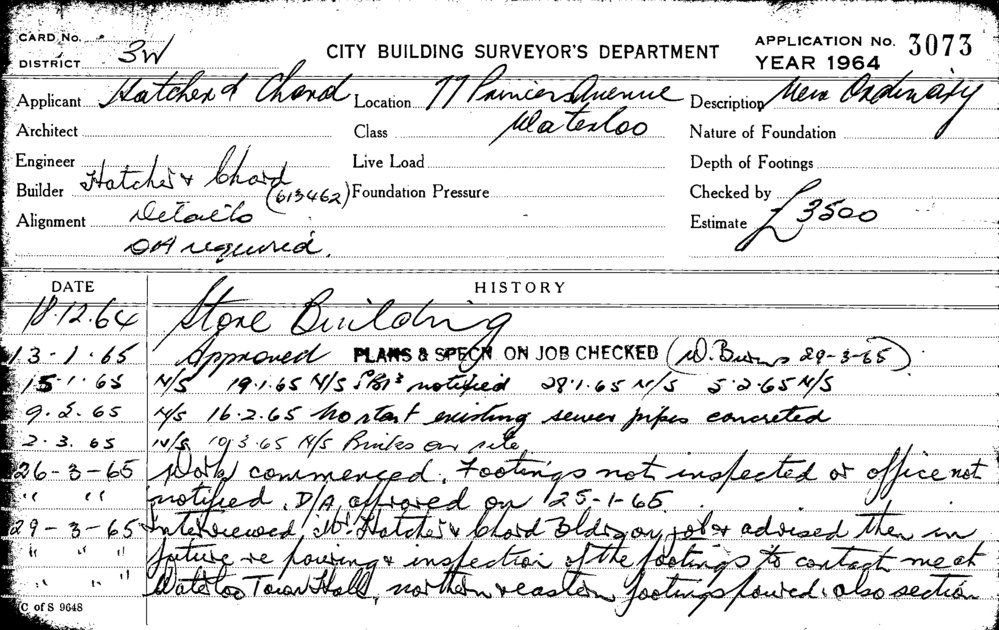 CARD No.
DISTRICT 3W
CITY BUILDING SURVEYOR'S DEPARTMENT
APPLICATION No. 3073
YEAR 1964
Applicant Hatcher & Chard Location 77 Princes Avenue Description New Ordinary
Architect Class Waterloo Nature of Foundation
Engineer Live Load Depth of Footings
Builder Hatcher & Chard (613462) Foundation Pressure Checked by
Alignment Details Estimate £3500
DA required.
DATE HISTORY
18.12.64 Store Building
13-1-65 Approved PLANS & SPECN. ON JOB CHECKED (W. Burns 29-3-65)
15.1.65 N/S 19.1.65 N/S notified 28.1.65 N/S 5.2.65 N/S
9.2.65 N/S 16.2.65 No start existing sewer pipes concreted
2.3.65 N/S 10.3.65 N/S Bricks on site
26-3-65 Work commenced. Footings not inspected or office not
" " notified. D/A approved on 25-1-65.
29-3-65 Interviewed Mr Hatcher & Chard Bldrs on job & advised them in
" " " future re pouring & inspection of the footings to contact me at
" " " Waterloo Town Hall, northern & eastern footings poured. also section
C of S 9648